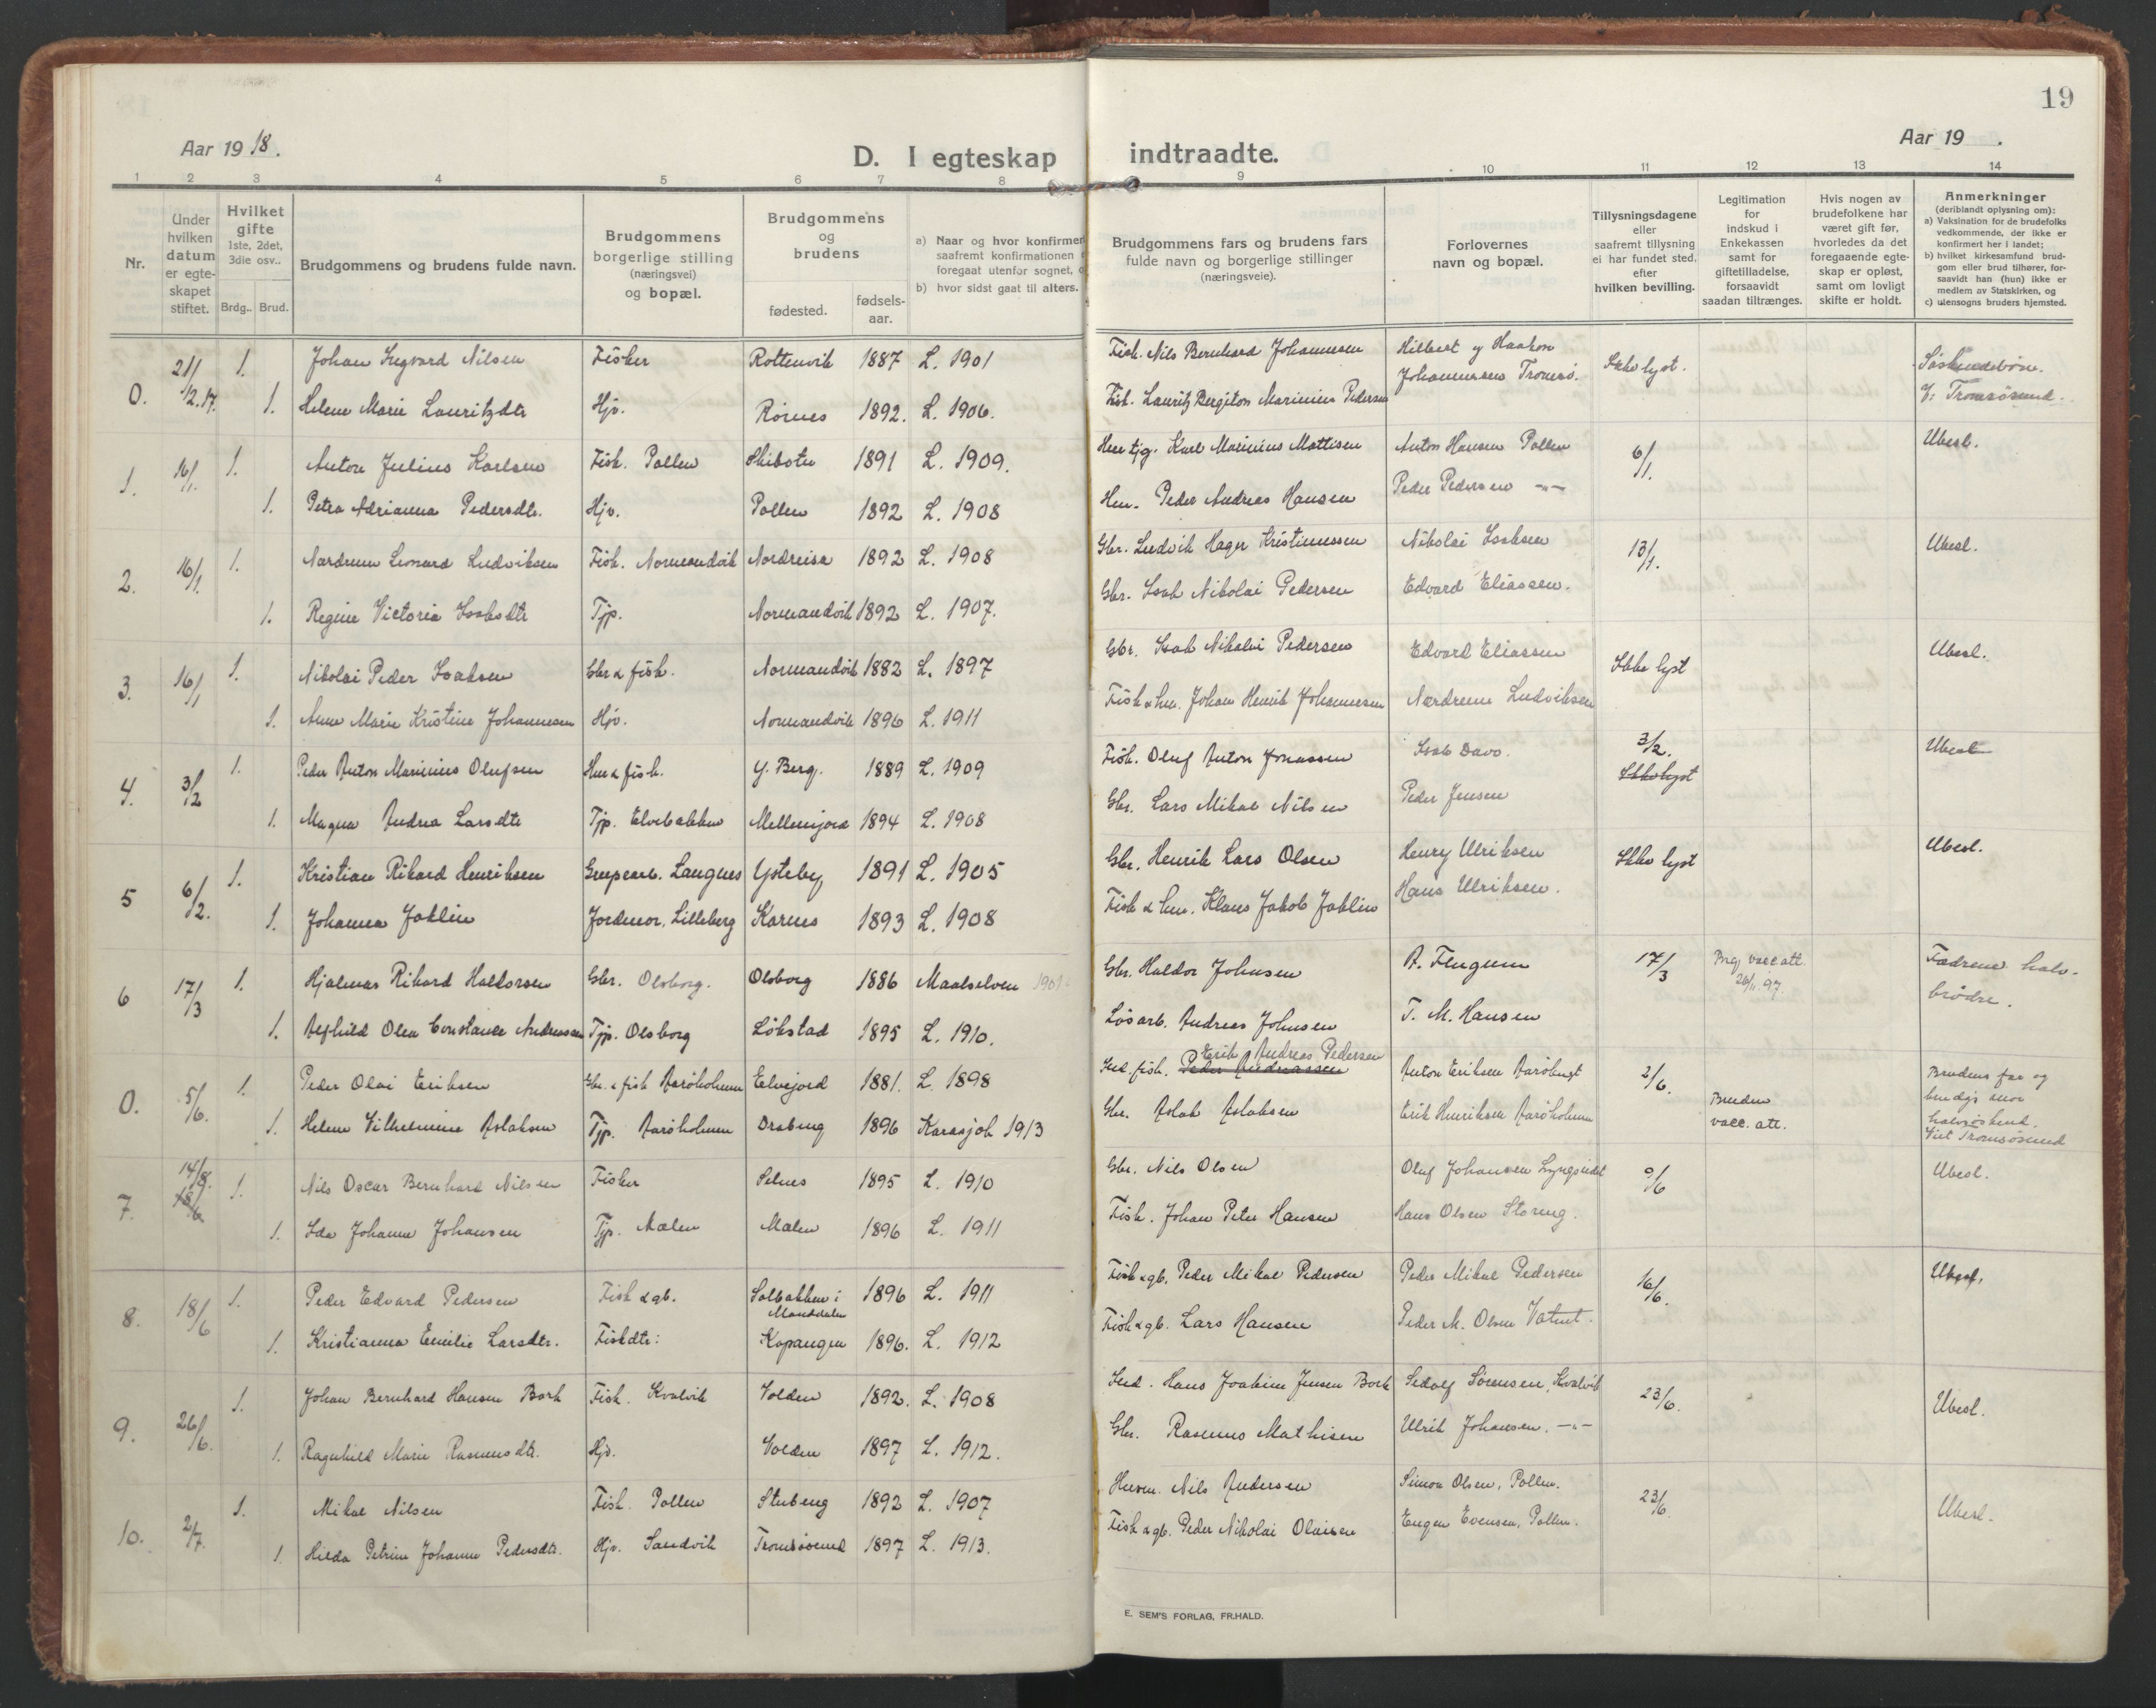 19
Aar 1918.
Aar 19 .
D. I egteskap indtraadte.
1 2 3 4 5 6 7 8 9 10 11 12 13 14
Nr.
Under hvilken datum er egte-skapet stiftet.
Hvilket gifte
1ste, 2det, 3die osv..
Brdg.. Brud.
Brudgommens og brudens fulde navn.
Brudgommens borgerlige stilling (næringsvei) og bopæl.
Brudgommens og brudens
fødested.
fødsels-aar.
a) Naar og hvor konfirmer
saafremt konfirmationen
foregaat utenfor sognet,
b) hvor sidst gaat til alters.
Brudgommens fars og brudens fars
fulde navn og borgerlige stillinger
(næringsveie).
Forlovernes
navn og bopæl.
Tillysningsdagene
eller
saafremt tillysning
ei har fundet sted,
efter
hvilken bevilling.
Legitimation
for
indskud i
Enkekassen
samt for
giftetilladelse,
forsaavidt
saadan tiltrænges.
Hvis nogen av
brudefolkene har
været gift før,
hvorledes da det
foregaaende egte-
skap er opløst,
samt om lovligt
skifte er holdt.
Anmerkninger
(deriblandt oplysning om):
a) Vaksination for de brudefolks
vedkommende, der ikke er
konfirmert her i landet;
b) hvilket kirkesamfund brud-
gom eller brud tilhører, for-
saavidt han (hun) ikke er
medlem av Statskirken, og
c) utensogns bruders hjemsted.
0. 21/12.17. 1. Johan Ingvard Nilsen Fisker Rottenvik 1887 L. 1901 Fisk. Nils Bernhard Johannesen Hilbert og Haakon Johannessen Tromsø. Ikke lyst. Søskendebørn.
1. Helene Marie Lauritzdtr Hjv. Rørnes 1892. L. 1906. Fisk. Lauritz Bergiton Marinius Pedersen V: Tromsøsund.
1. 16/1. 1. Anton Julius Karlsen Fisk. Pollen Skibotn 1891 L. 1909. Karl Marinius Mattisen Anton Hansen Pollen 6/1. Ubesl.
1. Petra Adrianna Pedersdtr. Hjv. Pollen 1892 L. 1908 Hm. Peder Andreas Hansen Peder Pedersen -"-
2. 16/1. 1. Nardrum Leonard Ludviksen Fisk. Normandvik Nordreisa 1892 L. 1908 Gbr. Ludvik Hager Kristianssen Nikolai Isaksen 13/1. Ubesl.
1. Regine Victoria Isaksdtr Tjp. Normandvik 1892 L. 1907. Gbr. Isak Nikolai Pedersen Edvard Eliassen.
3. 16/1 1. Nikolai Peder Isaksen Gbr & fisk. Normandvik 1882 L. 1897 Gbr. Isak Nikolai Pedersen Edvard Eliassen Ikke lyst Ubesl.
1. Anne Marie Kristine Johannesen Hjv. Normandvik 1896 L. 1911 Fisk & hm. Johan Henrik Johannesen Nardrum Ludviksen
4. 3/2 1. Peder Anton Marinius Olufsen Hm & fisk. Y. Berg. 1889 L. 1909 Fisk. Oluf Anton Jonassen Isak Davo. 3/2. Ikke lyst Ubesl
1. Magna Andrea Larsdtr Tjp. Elvebakken Mellemjord 1894 L. 1908 Gbr. Lars Mikal Nilsen Peder Jensen
5 6/2. 1. Kristian Rikard Henriksen Langnes Ysteby 1891 L. 1905 Gbr. Henrik Lars Olsen Henry Ulriksen Ikke lyst Ubesl.
1. Johanna Jaklin Jordmor. Lilleberg Karnes 1893 L. 1908 Fisk & hm. Klaus Jakob Jaklin Hans Ulriksen.
6 17/3 1. Hjalmar Rikard Haldorsen Gbr. Olsborg. Olsborg 1886 Maalselven 1901 Gbr. Haldor Johnsen A. Flugum 17/3 Brg. vacc att. 26/11.97. Fædrene halv-
1. Alfhild Olea Constance Andreassen Tjp. Olsborg Løkstad 1895 L. 1910. Løsarb. Andreas Johnsen T. M. Hansen brødre.
0. 5/6. 1. Peder Olai Eriksen Gbr. & fisk Aarøholmen Elvejord 1881. L. 1898 Ind. fisk. Peder Andreassen Erik Andreas Pedersen Anton Eriksen Aarøbugt 2/6. Brudens far og
1. Helene Vilhelmine Aslaksen Tjp. Aarøholmen 1896 Karasjok 1913 Gbr. Aslak Aslaksen Erik Henriksen Aarøholmen Bruden vacc. att. brudgs mor halvsøskend. Viet Tromsøsund
7. 14/8. 18/6 1. Nils Oscar Bernhard Nilsen Fisker Selnes 1895 L. 1910 Gbr. Nils Olsen Oluf Johansen Lyngseidet 9/6 Ubesl.
1. Ida Johanne Johansen Tjp. Malen Malen 1896 L. 1911 Fisk. Johan Peter Hansen Hans Olsen Storeng.
8. 18/6 1. Peder Edvard Pedersen Fisk & gb. Solbakken i Manddalen 1896 L. 1911 Fisk & gb. Peder Mikal Pedersen Peder Mikal Pedersen 16/6. Ubesl.
1. Kristianna Emilie Larsdtr. Fiskdtr: Kopangen 1896. L. 1912 Fisk & gb. Lars Hansen Peder M. Olsen Vatnet.
9. 26/6. 1. Johan Bernhard Hansen Bork Fisk. Kvalvik Volden 1892. L. 1908 Ind. Hans Joakim Jensen Bork Sedolf Sørensen, Kvalvik 23/6. Ubesl.
1. Ragnhild Marie Rasmusdtr. Hjv. Volden 1897 L. 1912. Gbr. Rasmus Mathisen Ulrik Johansen. -"-
10. 2/7. 1. Mikal Nilsen Fisk. Pollen Stubeng 1892 L. 1907 Husm. Nils Andersen Simon Olsen, Pollen. 23/6 Ubesl.
1. Hilda Petrine Johanne Pedersdtr. Hjv. Sandvik Tromsøsund 1897 L. 1913. Fisk & gb. Peder Nikolai Olaisen Eugen Evensen, Pollen.
E. SEM'S FORLAG, FR.HALD.